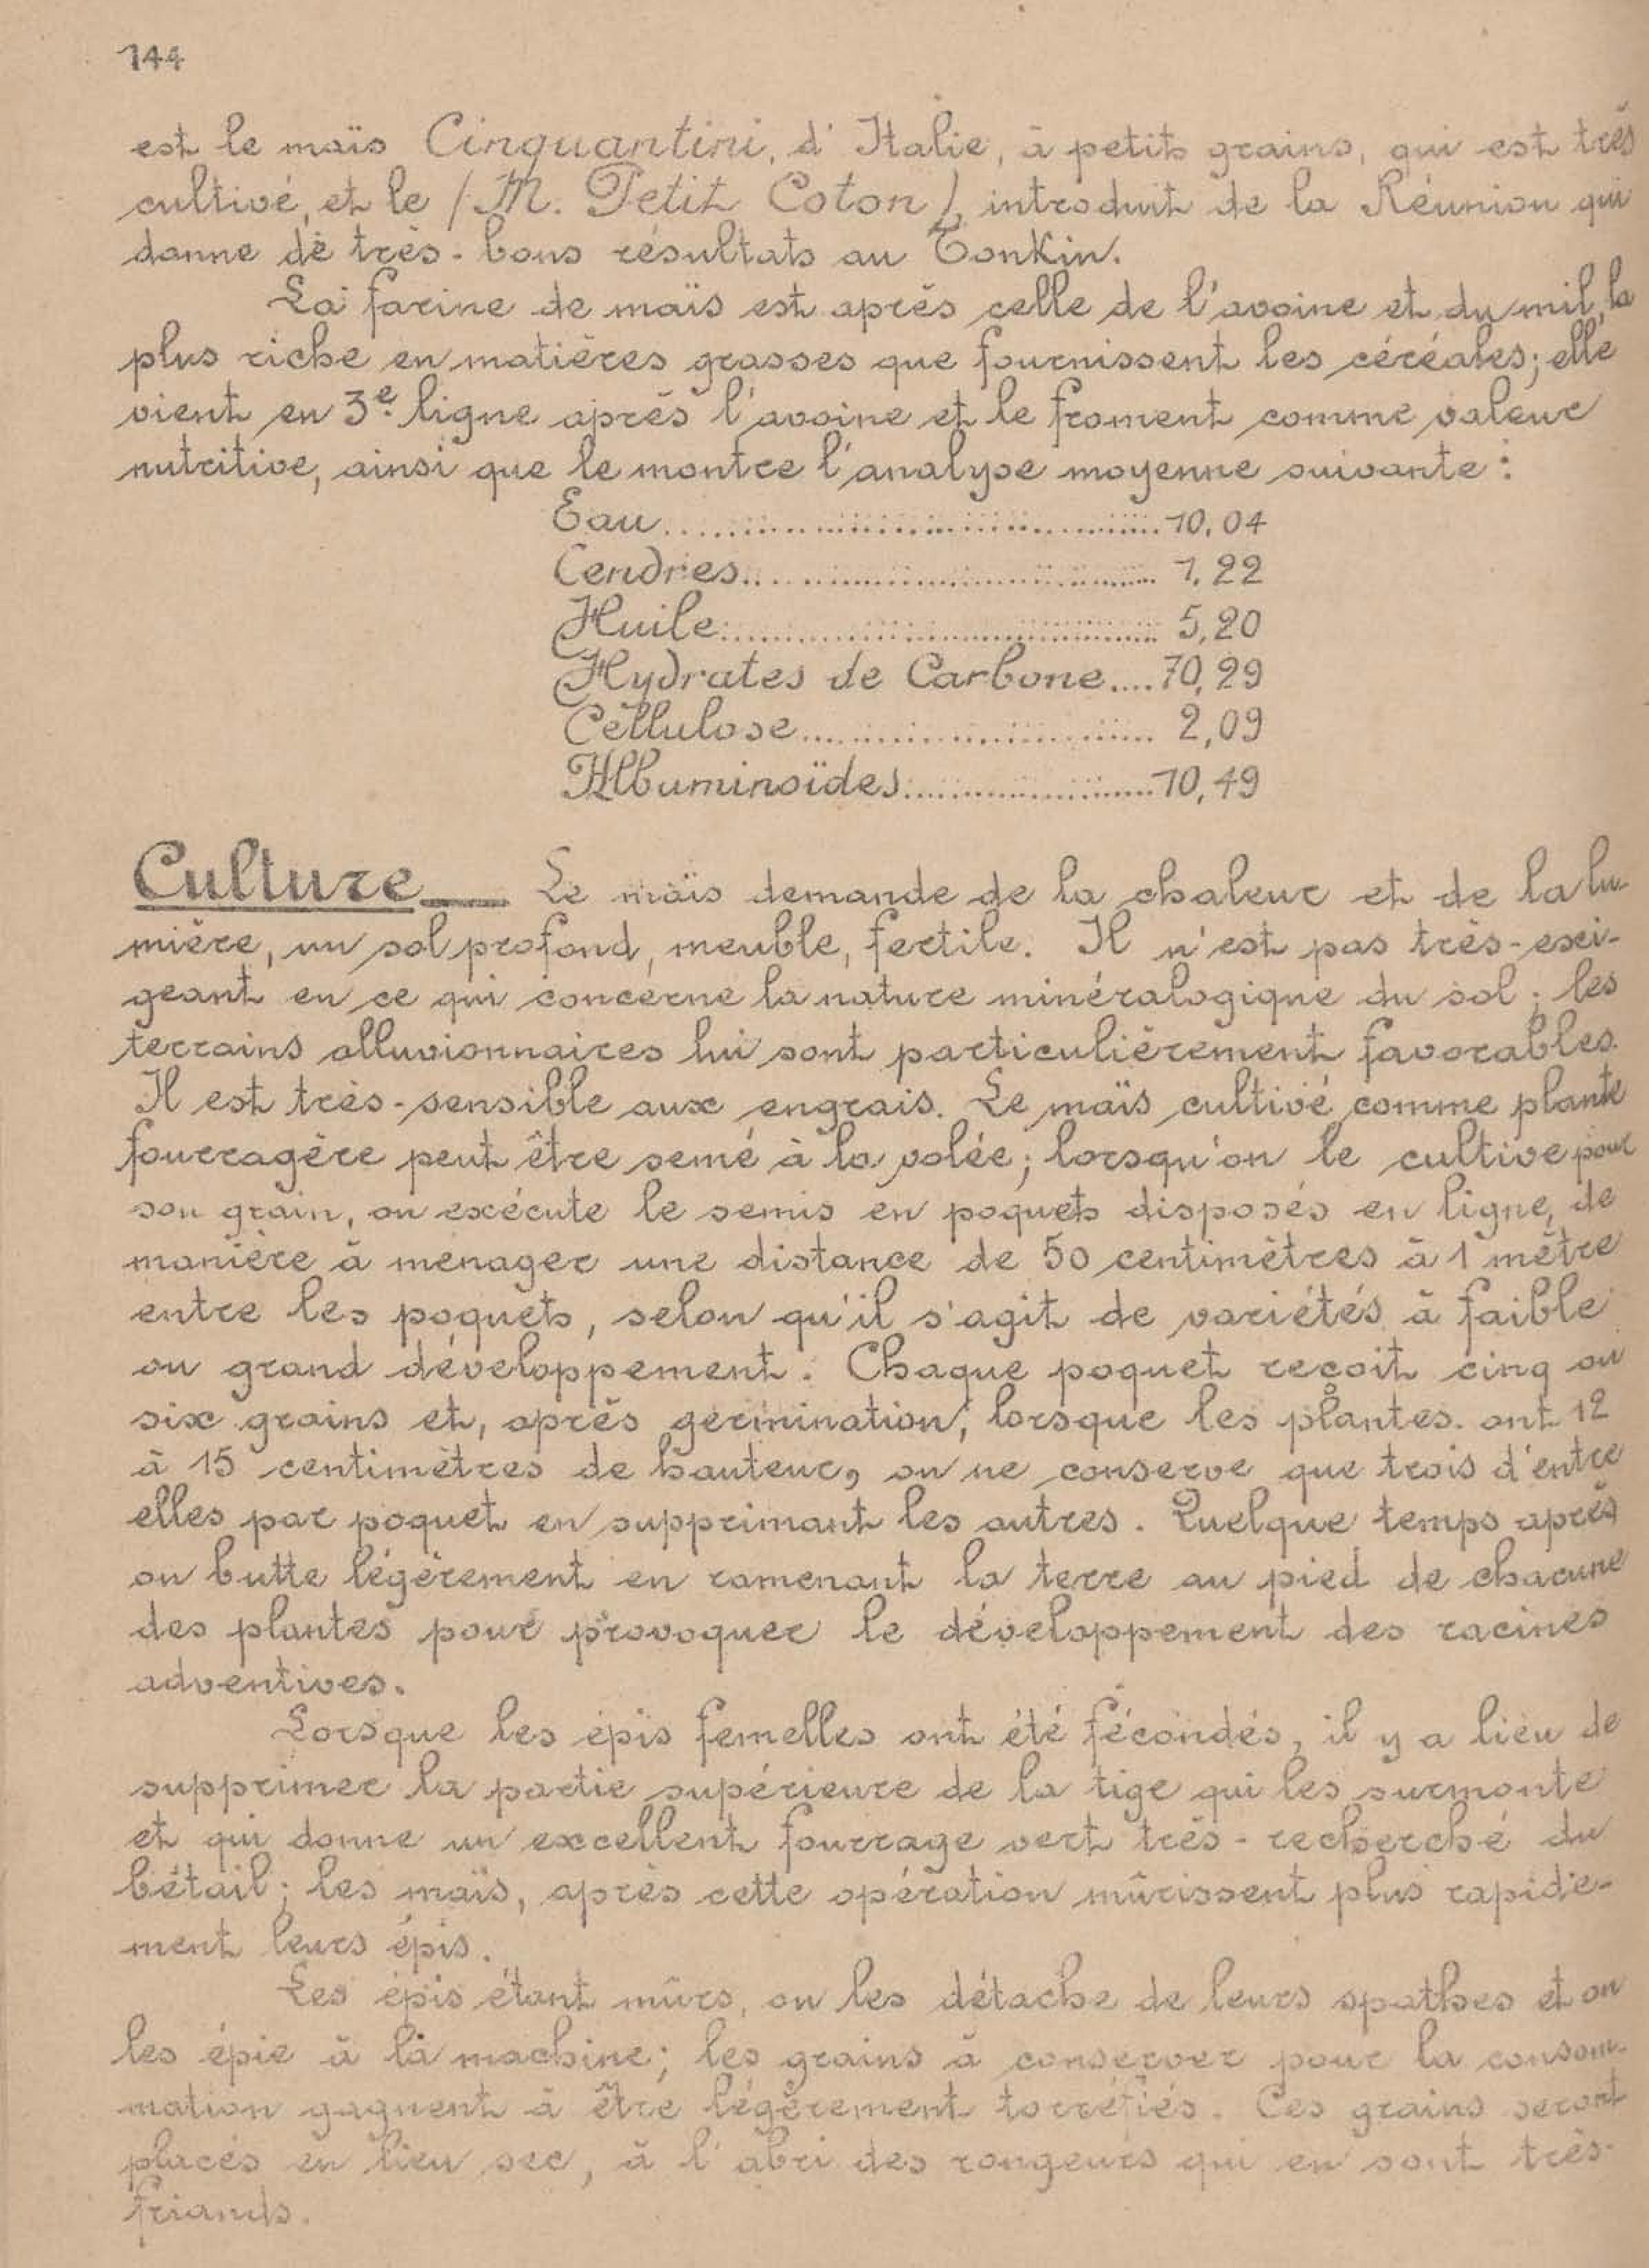 144
est le maïs Cinquantini, d'Italie, à petits grains, qui est très
cultivé, et le (M. Petit Coton), introduit de la Réunion qui
donne de très-bons résultats au Tonkin.
La farine de maïs est après celle de l'avoine et du mil, la
plus riche en matières grasses que fournissent les céréales; elle
vient en 3e. ligne après l'avoine et le froment comme valeur
nutritive, ainsi que le montre l'analyse moyenne suivante :
Eau.......................................10,04
Cendres.................................. 1,22
Huile.................................... 5,20
Hydrates de Carbone....70,29
Cellulose............................ 2,09
Albuminoïdes......................10,49
Culture — Le maïs demande de la chaleur et de la lu-
mière, un sol profond, meuble, fertile. Il n'est pas très-exi-
geant en ce qui concerne la nature minéralogique du sol ; les
terrains alluvionnaires lui sont particulièrement favorables.
Il est très-sensible aux engrais. Le maïs cultivé comme plante
fourragère peut être semé à la volée; lorsqu'on le cultive pour
son grain, on exécute le semis en poquets disposés en ligne, de
manière à ménager une distance de 50 centimètres à 1 mètre
entre les poquets, selon qu'il s'agit de variétés à faible
ou grand développement. Chaque poquet reçoit cinq ou
six grains et, après germination, lorsque les plantes ont 12
à 15 centimètres de hauteur, on ne conserve que trois d'entre
elles par poquet en supprimant les autres. Quelque temps après
on butte légèrement en ramenant la terre au pied de chacune
des plantes pour provoquer le développement des racines
adventives.
Lorsque les épis femelles ont été fécondés, il y a lieu de
supprimer la partie supérieure de la tige qui les surmonte
et qui donne un excellent fourrage vert très-recherché du
bétail ; les maïs, après cette opération mûrissent plus rapide-
ment leurs épis.
Les épis étant mûrs, on les détache de leurs spathes et on
les épie à la machine ; les grains à conserver pour la consom-
mation gagnent à être légèrement torréfiés. Ces grains seront
placés en lieu sec, à l'abri des rongeurs qui en sont très-
friands.